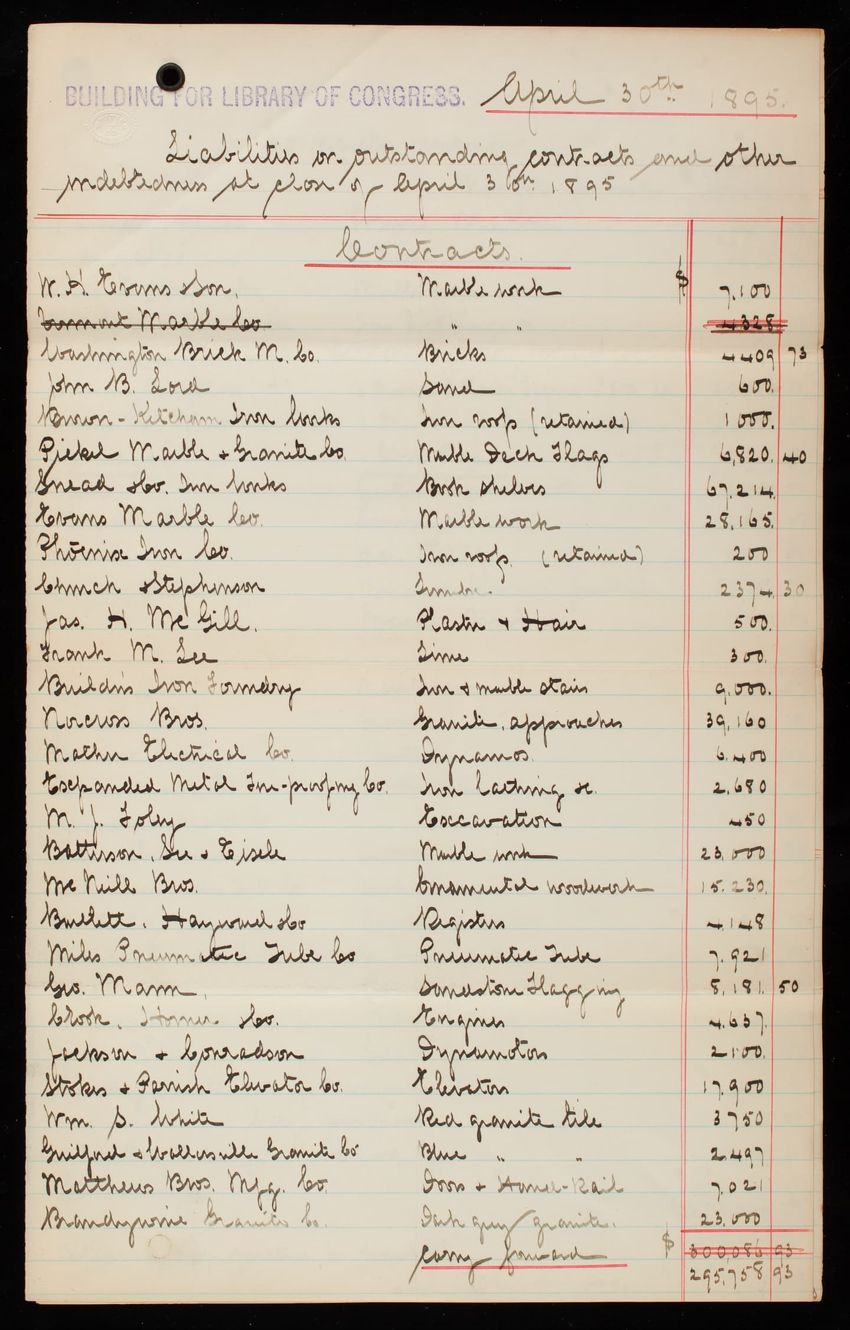 BUILDING FOR LIBRARY OF CONGRESS. April 30th 1895.
Liabilities on outstanding contracts and other
indebtedness at close of April 30th 1895
Contracts.
W. H. Evans & Son, Marble work $ 7,100
Vermont Marble Co " " 4328
Washington Brick M. Co. Bricks 4409 73
John B. Lord Sand 600.
Brown-Ketcham Iron Works Iron roofs (retained) 1000.
Pickel Marble & Granite Co. Marble Deck Flags 6,820. 40
Snead & Co. Iron Works Book shelves 67,214.
Evans Marble Co. Marble work 28,165.
Phoenix Iron Co. Iron roofs. (retained) 200
Church & Stephenson Lumber. 2374. 30
Jas. H. McGill. Plaster & Hair 500.
Frank M. Lee Lime 300.
Builders Iron Foundry Iron & marble stairs 9,000.
Norcross Bros. Granite, approaches 39,160
Mather Electrical Co. Dynamos. 6,400
Expanded Metal Fire-proofing Co. Iron lathing &c. 2,680
M. J. Foley Excavation 450
Batterson, See & Eisele Marble work 23,000
McNeill Bros. Ornamental woodwork 15,230.
Bartlett, Hayward & Co Registers 4,148
Miles Pneumatic Tube Co Pneumatic Tube 7,921
Geo. Mann, Sandstone Flagging 8,181. 50
Crook, Horner & Co. Engines 4,637.
Jackson & Conradson Dynamotors 2100.
Stokes & Parrish Elevator Co. Elevators 17,900
Wm. S. White Red granite tile 3750
Guilford & Waltersville Granite Co Blue " " 2,497
Matthews Bros. Mfg. Co. Doors & Hand-Rail 7,021
Brandywine Granite Co. Dark gray granite. 23,000
carry forward $ 300,086 93
295,758 93